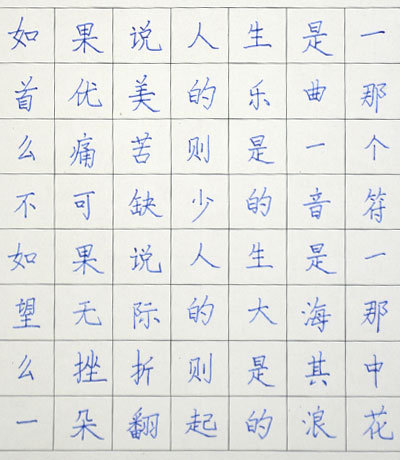 如果说人生是一
首优美的乐曲那
么痛苦则是一个
不可缺少的音符
如果说人生是一
望无际的大海那
么挫折则是其中
一朵翻起的浪花